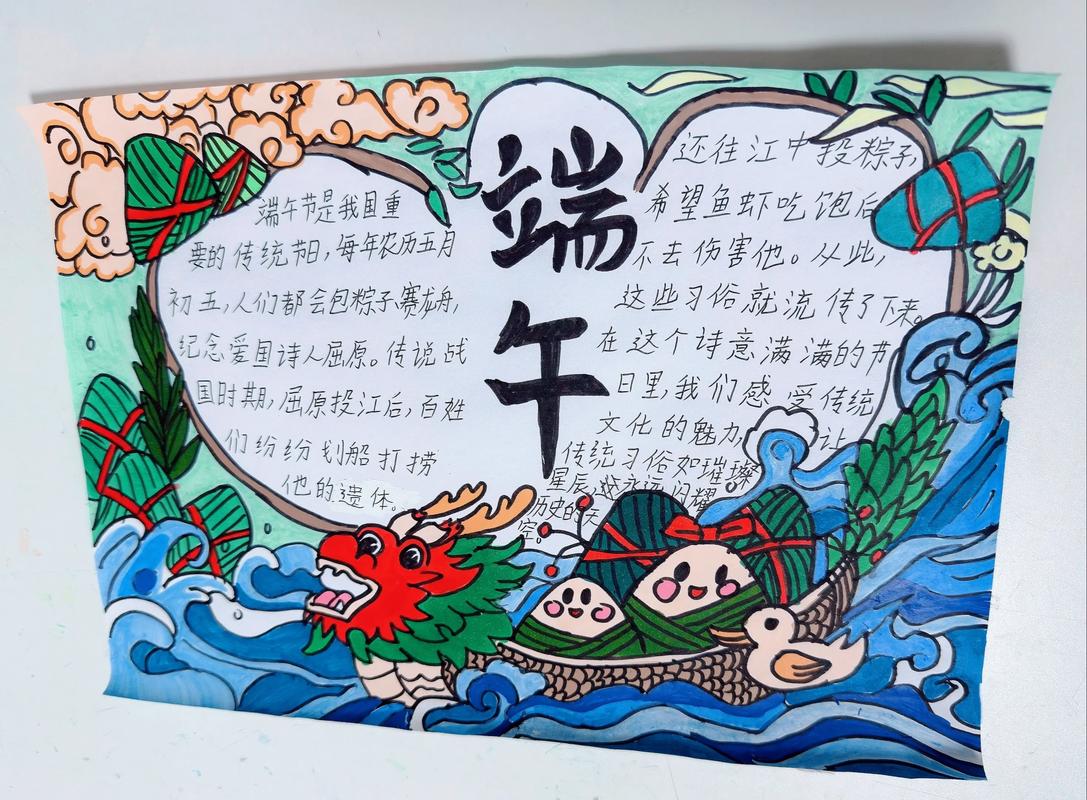 端午
端午节是我国重
要的传统节日,每年农历五月
初五,人们都会包粽子、赛龙舟,
纪念爱国诗人屈原。传说战
国时期,屈原投江后,百姓
们纷纷划船打捞
他的遗体。
还往江中投粽子,
希望鱼虾吃饱后
不去伤害他。从此,
这些习俗就流传了下来。
在这个诗意满满的节
日里,我们感受传统
文化的魅力,让
传统习俗如璀璨
星辰 永远闪耀
历史的天
空。